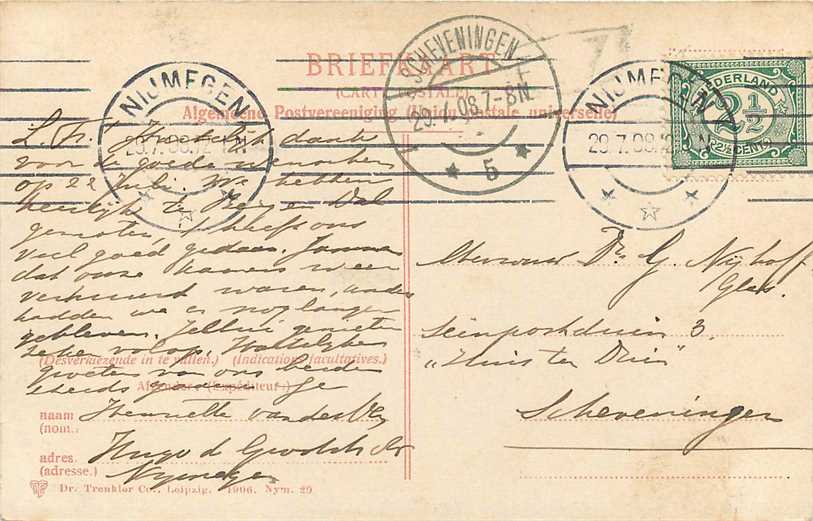 BRIEFKAART
(CARTE POSTALE)
Algemeene Postvereeniging (Union postale universelle)
NIJMEGEN
29.7.08.12.1N
SCHEVENINGEN
29.7.08.7-8N.
5
NIJMEGEN
29.7.08.12.1N
NEDERLAND
2½
2½ CENT
L. Tr. Hartelijk dank
voor je goede wenschen
op 22 Juli. We hebben
heerlijk te Berg en Dal
genoten, 't heeft ons
veel goed gedaan. Jammer
dat onze kamers weer
verhuurd waren, anders
hadden we er nog langer
gebleven. Jellui genieten
zeker volop. Hartelijke
groeten van ons beiden
steeds je
(Desverkiezende in te vullen.) (Indications facultatives.)
Afzender: (Expéditeur:)
naam Henriette van der
(nom:)
adres. Hugo d Grootstr
(adresse.) Nijmegen
Dr. Trenkler Co., Leipzig. 1906. Nym. 29
Mevrouw Dr G. Nijhoff
Seinpostduin 3.
"Huis ten Duin"
Scheveningen